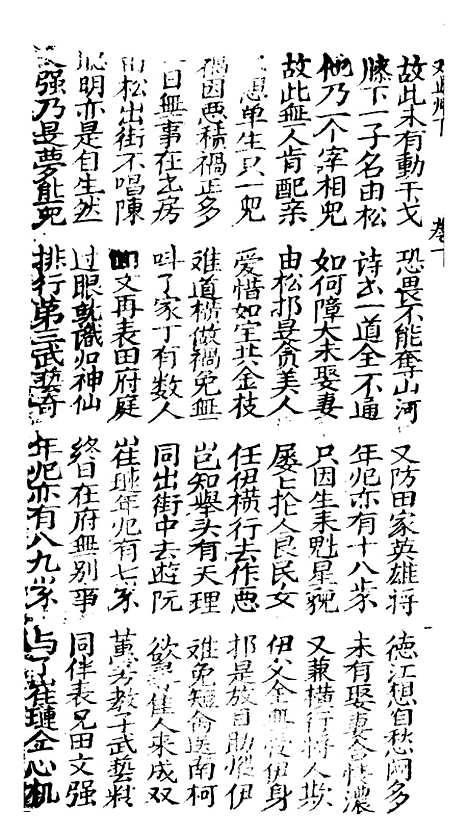 故此未有動干戈 恐畏不能奪山河 又防田家英雄將 德江想自愁闷多
膝下一子名由松 诗书一道全不通 年纪亦有十八岁 未有娶妻情濃
他乃一个宰相兒 如何障大未娶妻 只因生来魁星貌 又兼橫行将人欺
故此無人肯配亲 由松邦是貪美人 屡々抢人良民女 伊父全無慢伊身
想单生只一兒 爱惜如宝共金枝 任伊橫行去作恶 邦是放自助縱伊
禍因恶積禍正多 难道橫做禍免無 岂知举头有天理 难免短命送南柯
一日無事在书房 叫了家丁有数人 同出街中去遊阮 欲尋佳人来成双
由松出街不唱陳 文再表田府庭 崔璉年纪有七岁 董芳教子武艺
聪明亦是自生然 过眼就識归神仙 終日在府無別事 同伴表兄田文强
文强乃是夢能兒 排行第三武藝奇 年纪亦有八九岁 与了崔璉仝心机